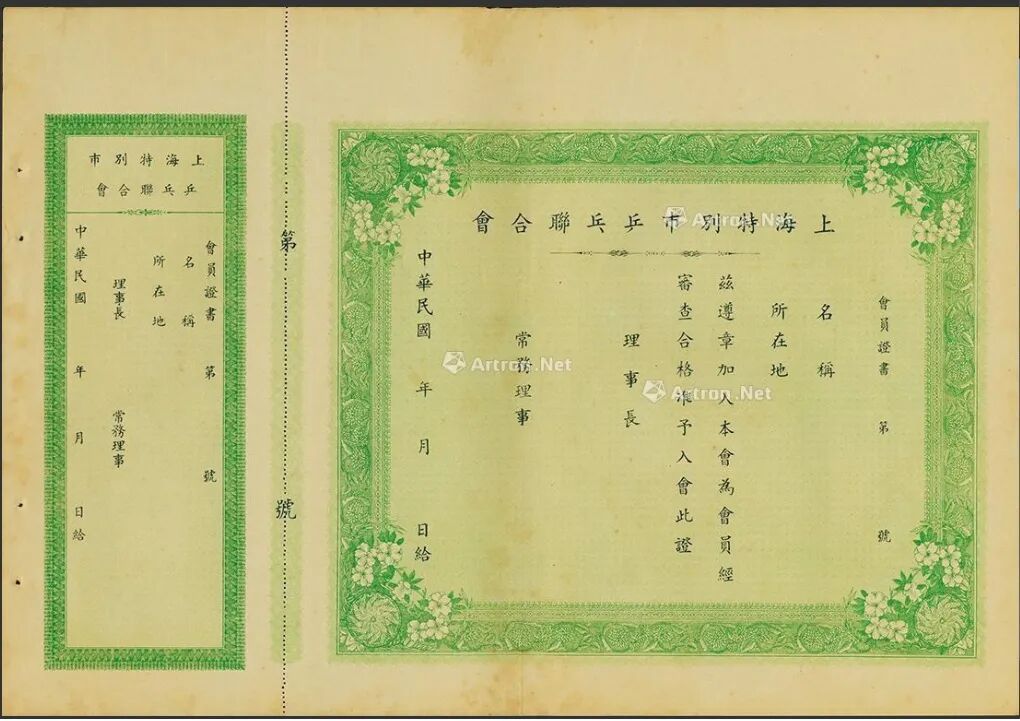 上海特別市乒乓聯合會
會員證書 第 號
名稱
所在地
茲遵章加入本會為會員經
審查合格准予入會此證
理事長
常務理事
中華民國 年 月 日給
第 號
上海特別市
乒乓聯合會
會員證書 第 號
名稱
所在地
理事長
常務理事
中華民國 年 月 日給
Artron.Net
Artron.Net
Artron.Net